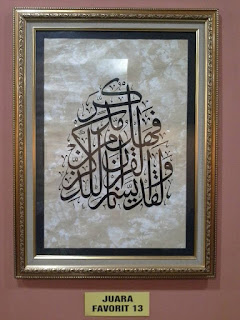 ولقد يسرنا القرآن للذكر فهل من مدكر
JUARA
FAVORIT 13